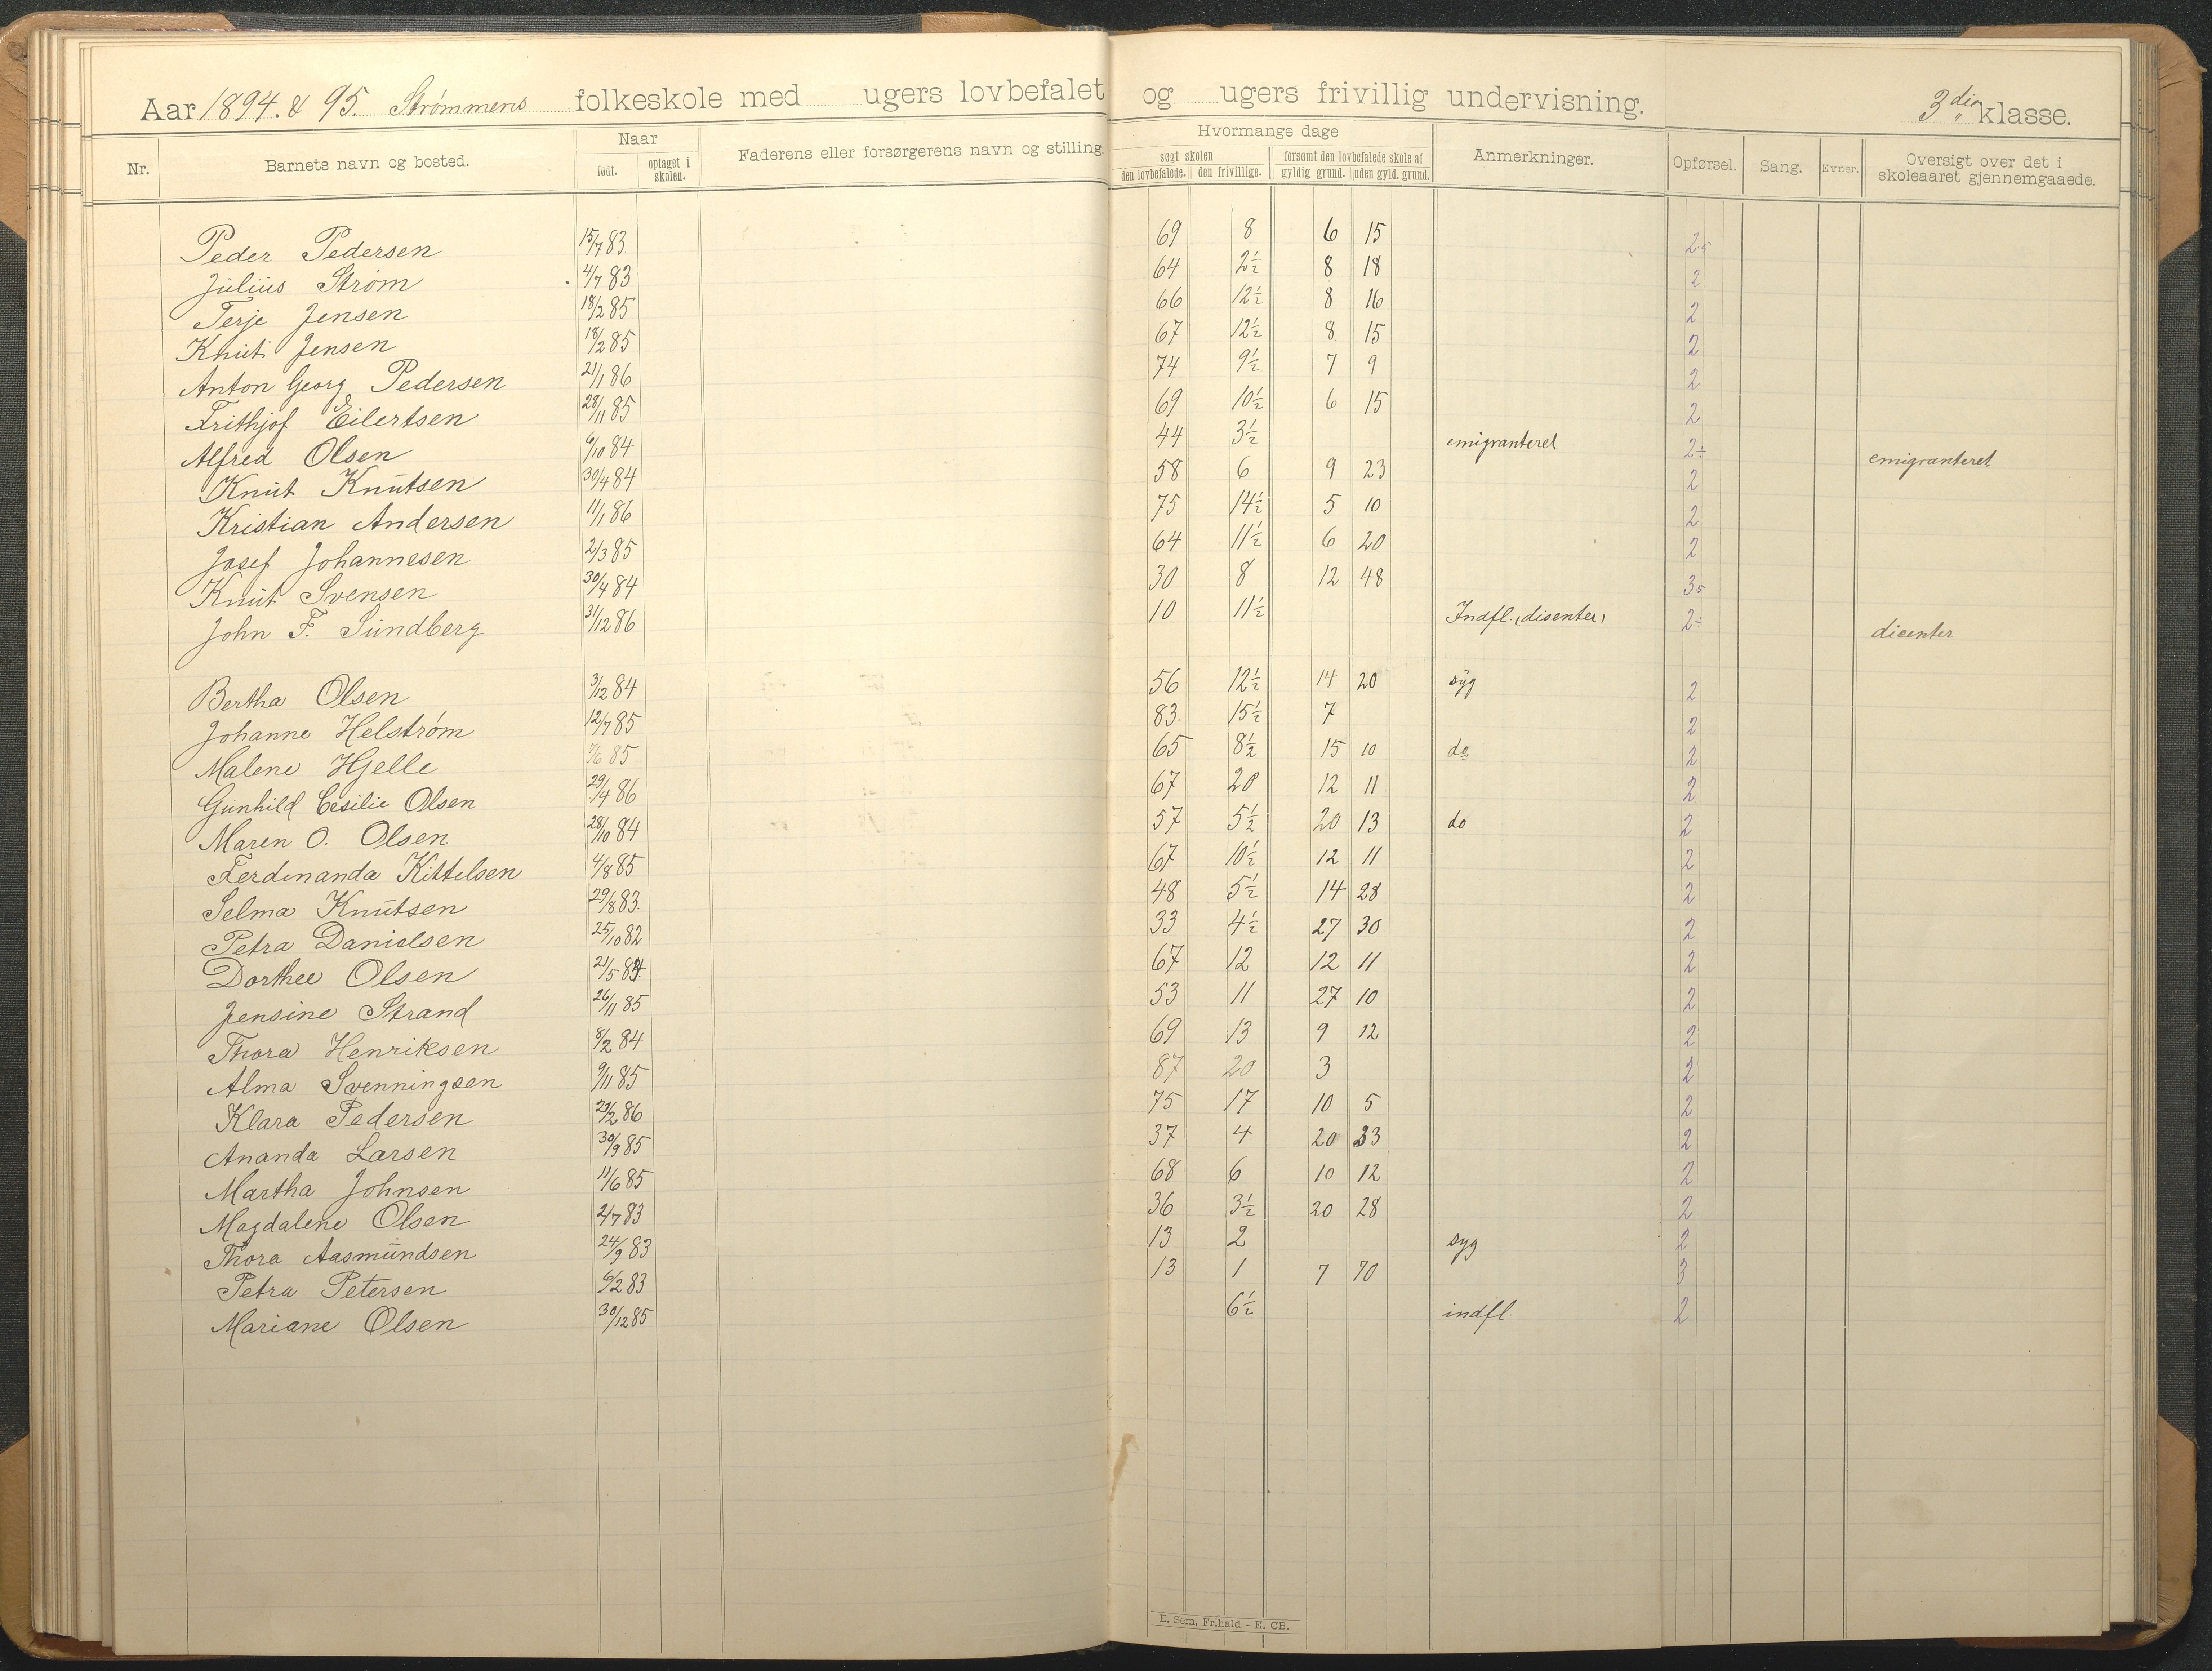 Aar 1894. & 95. Strømmens folkeskole med ugers lovbefalet og ugers frivillig undervisning. 3die klasse.
Nr. Barnets navn og bosted. Naar født. optaget i skolen. Faderens eller forsørgerens navn og stilling. Hvormange dage søgt skolen den lovbefalede. den frivillige. forsømt den lovbefalede skole af gyldig grund. uden gyld. grund. Anmerkninger. Opførsel. Sang. Evner. Oversigt over det i skoleaaret gjennemgaaede.
Peder Pedersen 15/7 83. 69 8 6 15 2.5
Julius Strøm 4/7 83 64 2½ 8 18 2
Terje Jensen 18/2 85 66 12½ 8 16 2
Knut Jensen 18/2 85 67 12½ 8 15 2
Anton Georg Pedersen 21/1 86 74 9½ 7 9 2
Frithjof Eilertsen 28/11 85 69 10½ 6 15 2
Alfred Olsen 6/10 84 44 3½ emigranteret 2÷ emigranteret
Knut Knutsen 30/4 84 58 6 9 23 2
Kristian Andersen 11/1 86 75 14½ 5 10 2
Josef Johannesen 2/3 85 64 11½ 6 20 2
Knut Svensen 30/4 84 30 8 12 48 3.5
John F. Sundberg 31/12 86 10 11½ Indfl. (disenter) 2÷ dicenter
Bertha Olsen 3/12 84 56 12½ 14 20 syg 2
Johanne Helstrøm 12/7 85 83. 15½ 7 2
Malene Hjelle 7/6 85 65 8½ 15 10 do 2
Gunhild Cesilie Olsen 29/4 86 67 20 12 11 2
Maren O. Olsen 28/10 84 57 5½ 20 13 do 2
Ferdinanda Kittelsen 4/8 85 67 10½ 12 11 2
Selma Knutsen 29/8 83. 48 5½ 14 28 2
Petra Danielsen 25/10 82 33 4½ 27 30 2
Dorthee Olsen 21/5 84 67 12 12 11 2
Jensine Strand 26/11 85 53 11 27 10 2
Thora Henriksen 8/2 84 69 13 9 12 2
Alma Svenningsen 9/11 85 87 20 3 2
Klara Pedersen 86 75 17 10 5 2
Ananda Larsen 30/9 85 37 4 20 33 2
Martha Johnsen 11/6 85 68 6 10 12 2
Magdalene Olsen 2/7 83 36 3½ 20 28 2
Thora Aasmundsen 24/9 83 13 2 syg 2
Petra Petersen 6/2 83 13 1 7 70 3
Mariane Olsen 30/12 85 6½ indfl. 2
E. Sem, Fr.hald - E. CB.